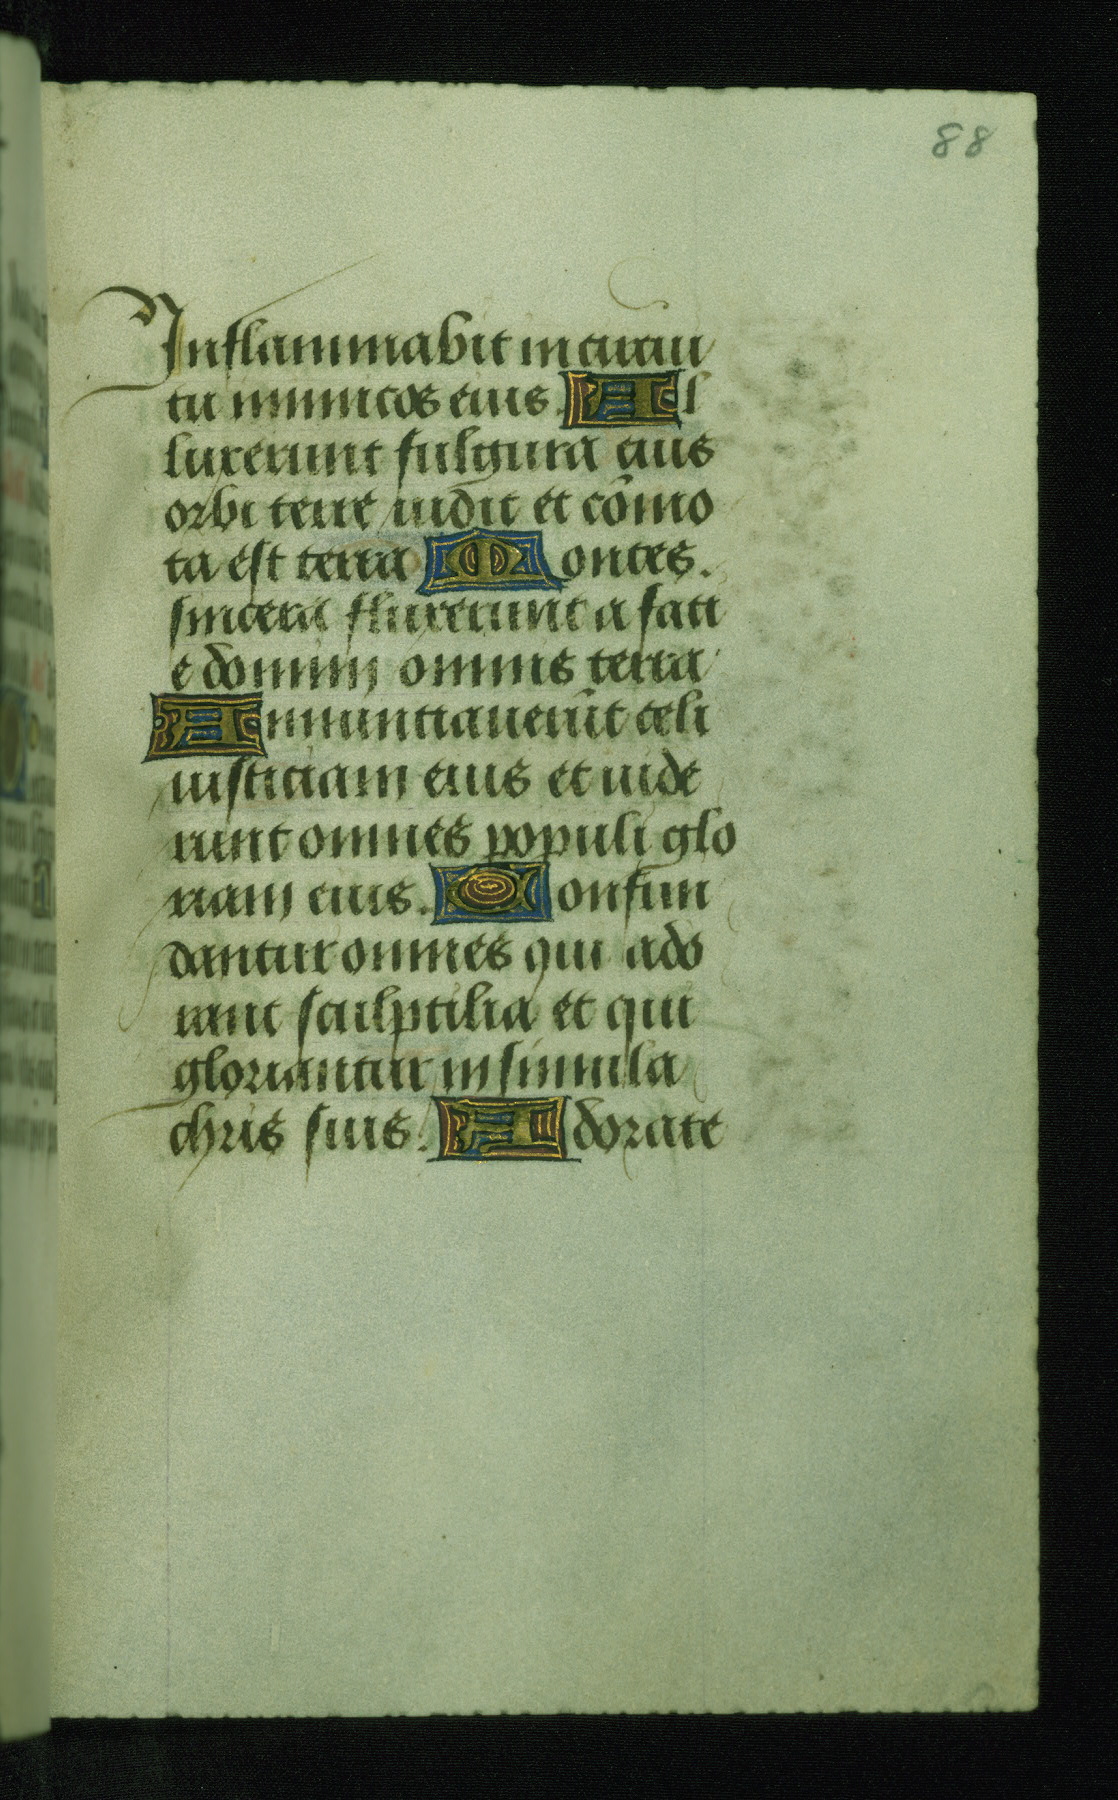 88
Inflammabit in circui
tu inimicos eius. Al
luxerunt fulgura eius
orbi terre uidit et cōmo
ta est terra Montes.
sicut cera fluxerunt a faci
e domini omnis terra
Annuntiauerūt celi
iusticiam eius et uide
runt omnes populi glo
riam eius. Confun
dantur omnes qui ado
rant sculptilia et qui
gloriantur in simula
chris suis. Adorate